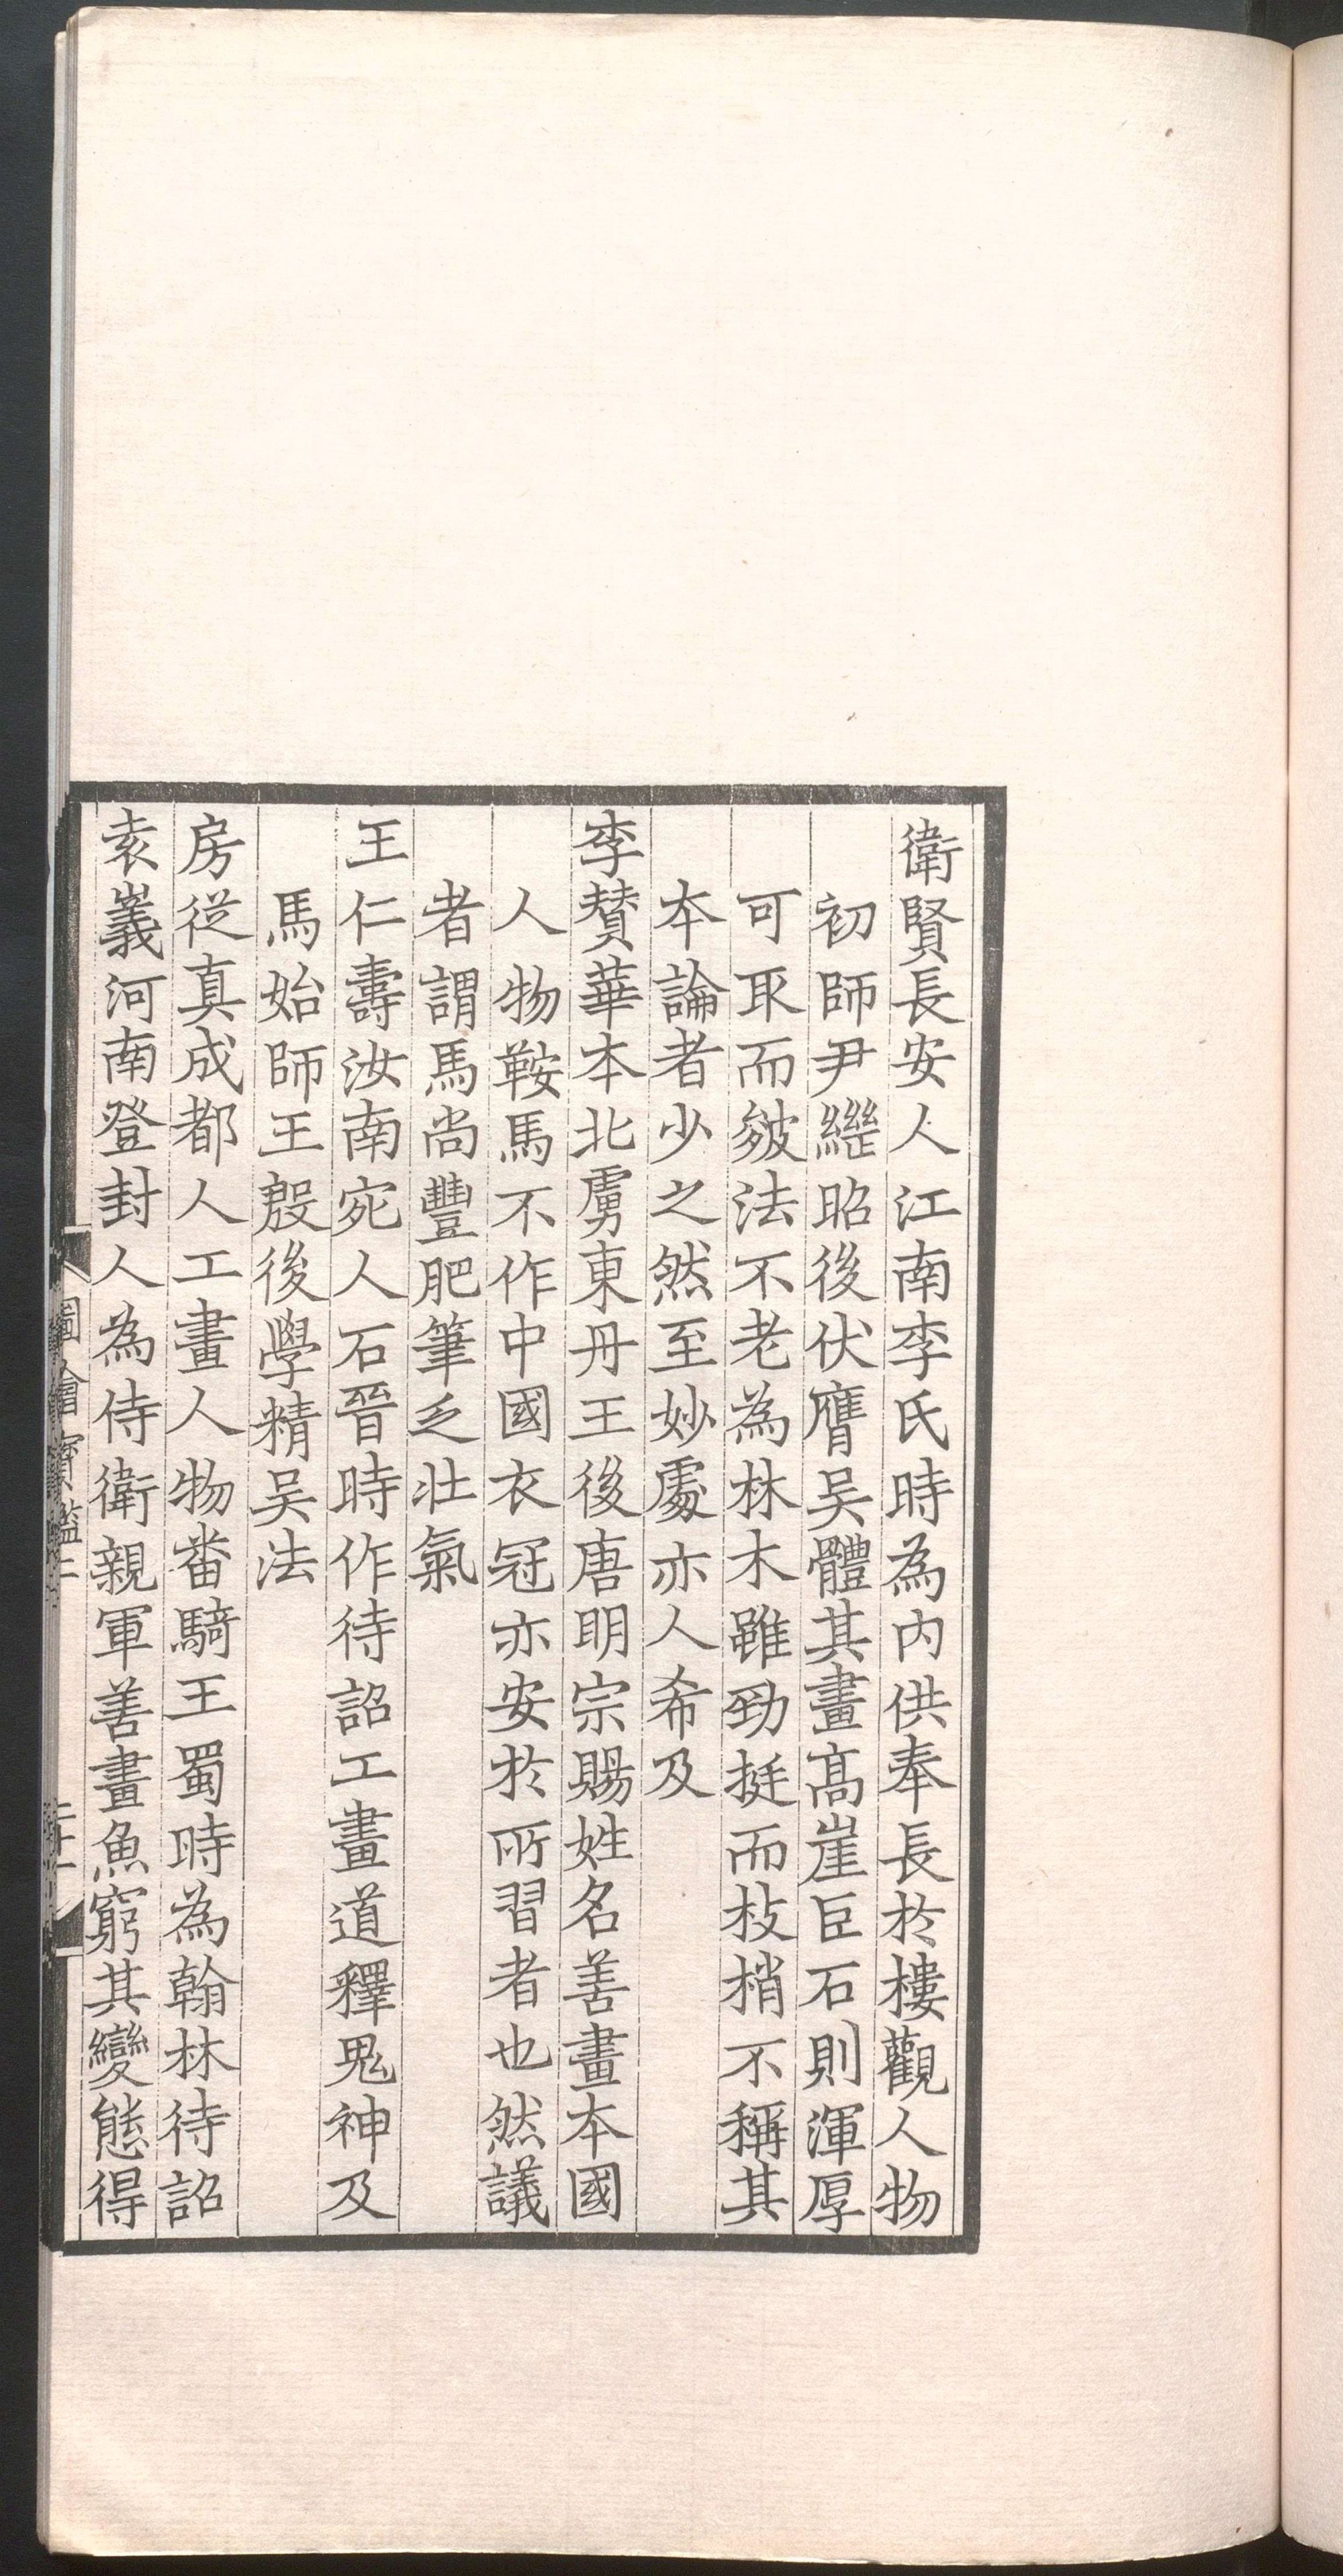 衛賢長安人江南李氏時為内供奉長於樓觀人物
初師尹繼昭後伏膺吴體其畫高崖臣石則渾厚
可取而皴法不老為林木雖勁挺而枝梢不稱其
本論者少之然至妙處亦人希及
李賛華本北虜東丹王後唐明宗賜姓名善畫本國
人物鞍馬不作中國衣冠亦安於所習者也然議
者謂馬尚豐肥筆乏壯氣
王仁壽汝南宛人石晉時作待詔工畫道釋鬼神及
馬始師王殷後學精吴法
房從真成都人工畫人物畨騎王蜀時為翰林待詔
袁嶬河南登封人為侍衛親軍善畫魚窮其變態得
圖繪寳鑑二